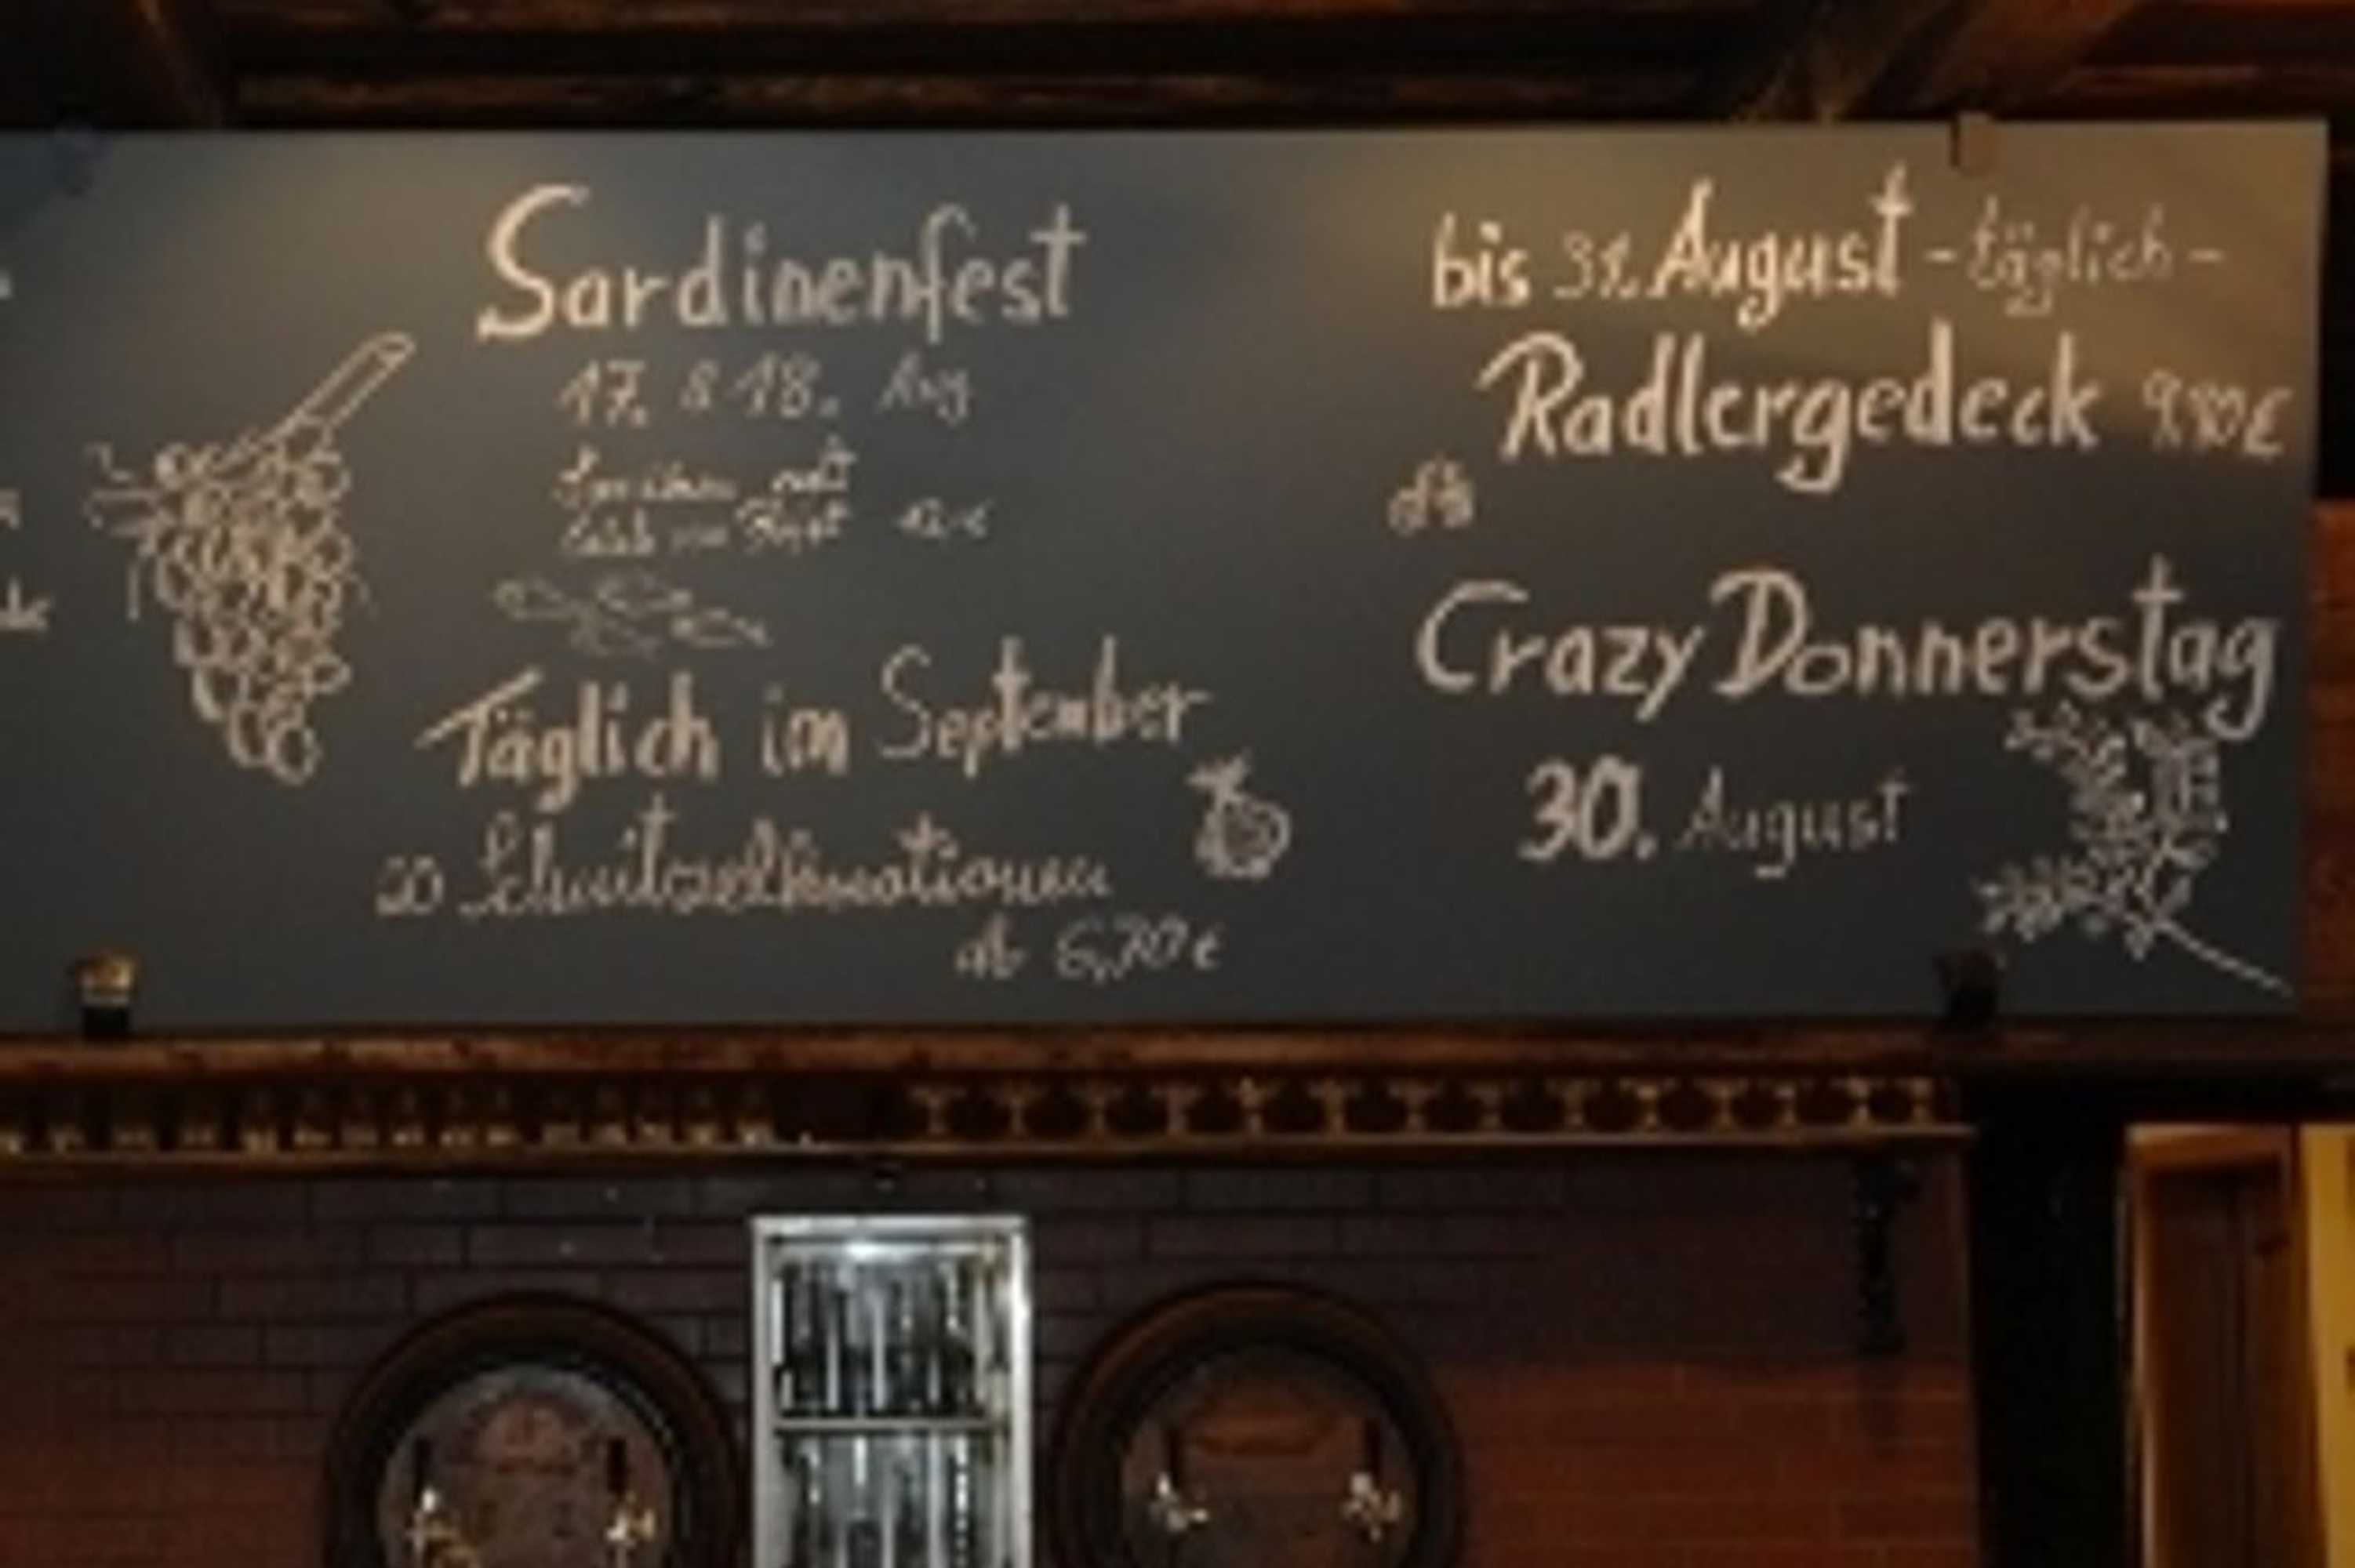 Sardinenfest
17. & 18. Aug
mit
Täglich im September
20 Schnitzelkreationen
ab 6,70 €
bis 31. August - täglich -
Radlergedeck 9,80 €
Crazy Donnerstag
30. August